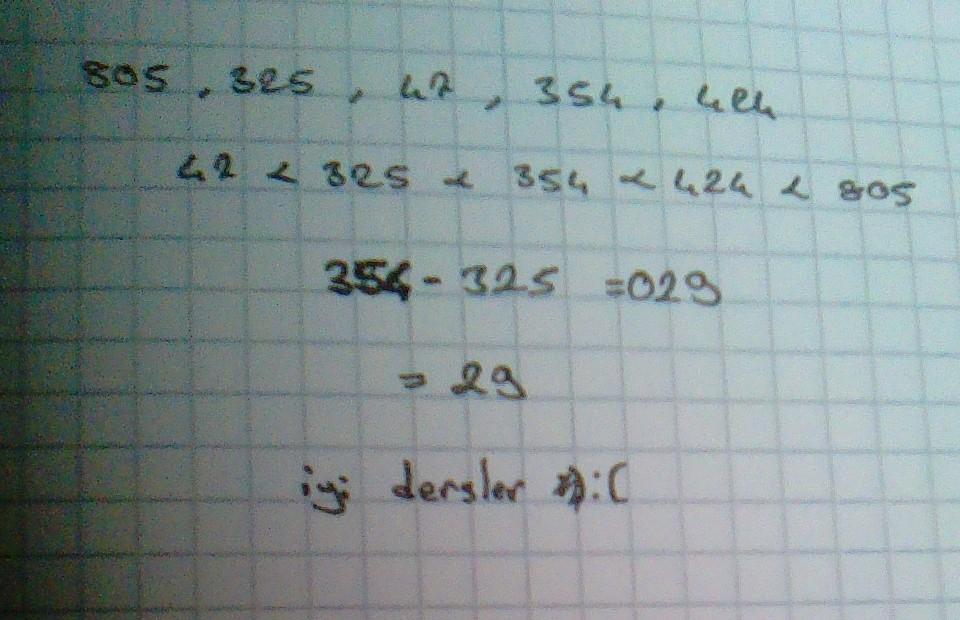 805 , 325 , 42 , 354 , 424
42 < 325 < 354 < 424 < 805
354 - 325 = 029
= 29
iyi dersler :(